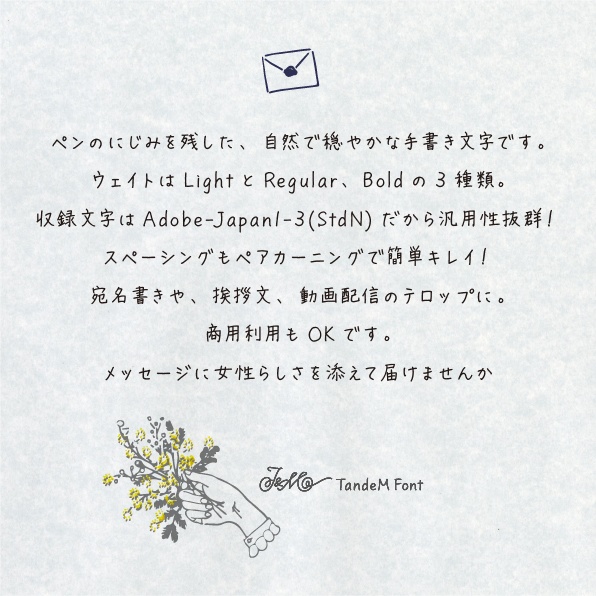 ペンのにじみを残した、自然で穏やかな手書き文字です。
ウェイトは Light と Regular、Bold の 3 種類。
収録文字は Adobe-Japan1-3(StdN) だから汎用性抜群！
スペーシングもペアカーニングで簡単キレイ！
宛名書きや、挨拶文、動画配信のテロップに。
商用利用も OK です。
メッセージに女性らしさを添えて届けませんか
TandeM Font